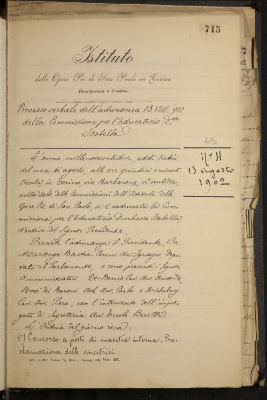 713
Istituto
delle Opere Pie di San Paolo in Torino
Beneficenza e Credito
Processo verbale dell'adunanza 13 VIII. 902
della Commissione per l'Educatorio D.ssa
Isabella
N° 11
13 agosto
1902
L'anno millenovecentodue, addì tredici
del mese di agosto, alle ore quindici e minuti
trenta in Torino, via Barbaroux,
nella sala delle Commissioni dell'Istituto delle
Opere Pie di San Paolo, si è radunata la Com
missione per l'Educatorio Duchessa Isabella
d'ordine del Signor Presidente.
Presiede l'adunanza il Presidente
Marsengo Bastia Comm. Avv. Ignazio, Depu
tato al Parlamento, e sono presenti i Signori
Commissari De-Benis Cav. Avv.
Rossi di Baroni Nob. Avv. Carlo e
Cav. Avv. Piero, con l'intervento dell'impie
gato di Segreteria Avv. Ercole Beretta.
L'Ordine del giorno reca:
1°) Concorso a posti di maestra interna. Pro
clamazione delle vincitrici